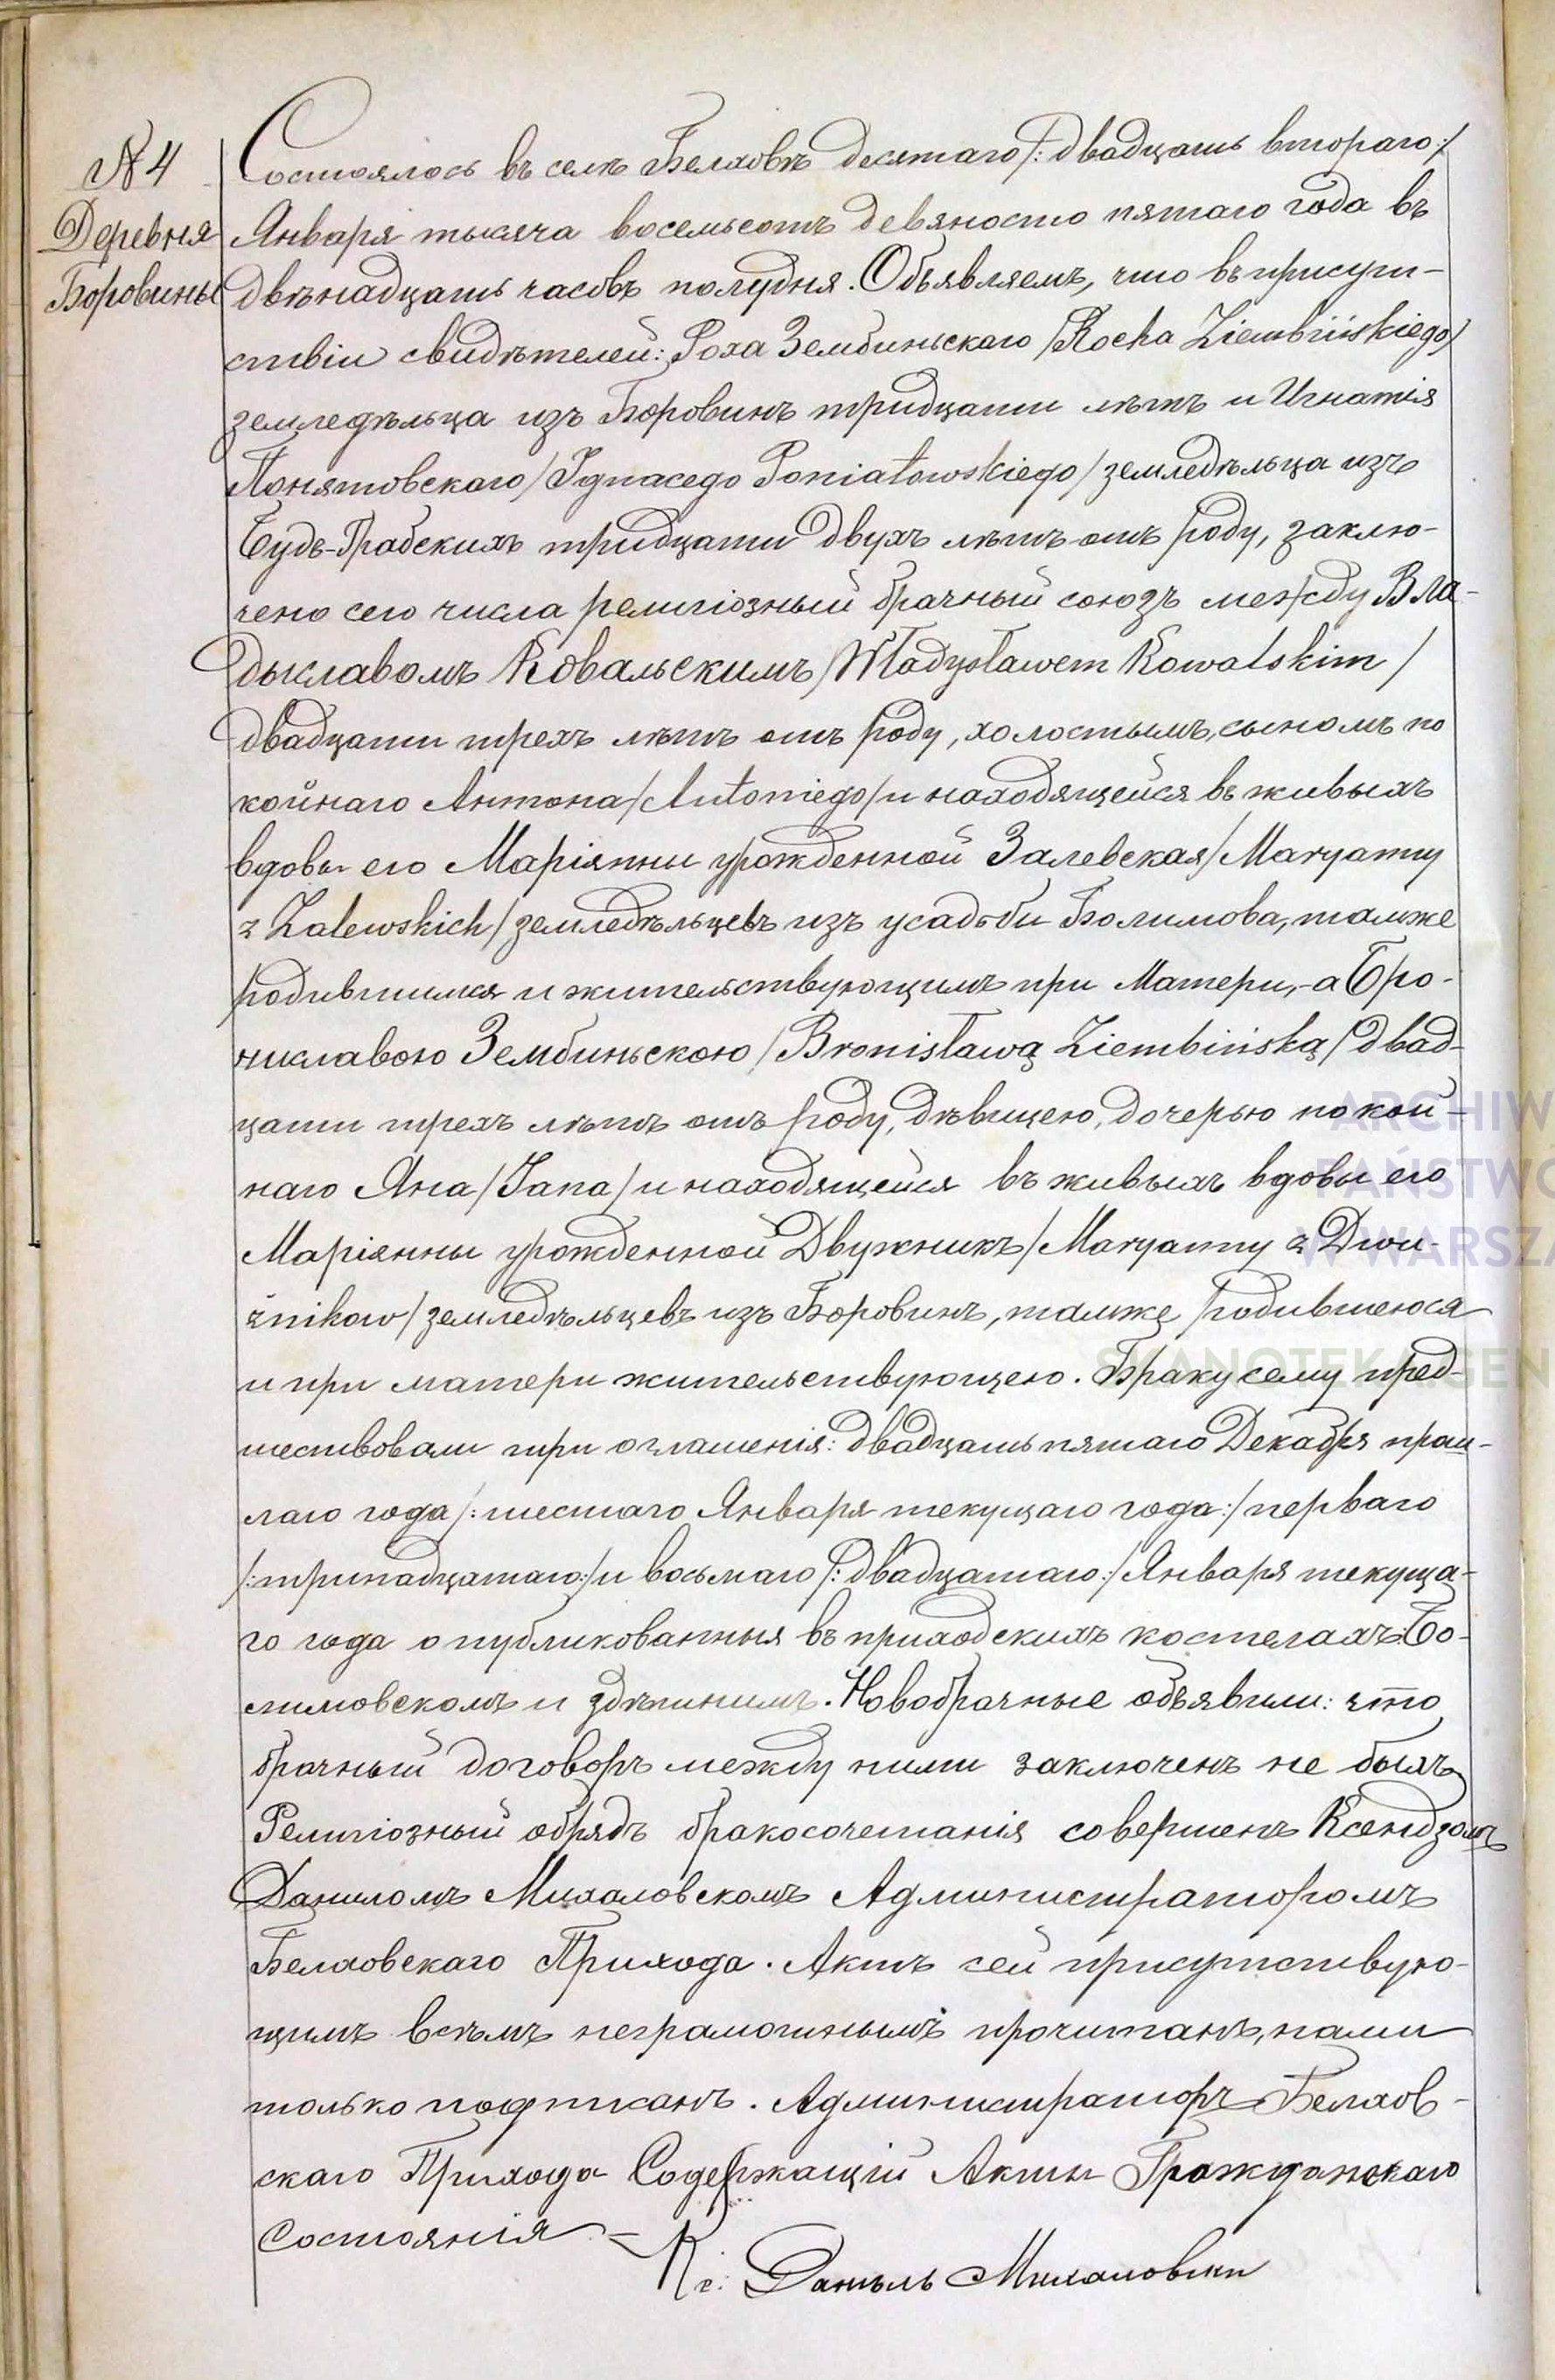 № 4
Деревня
Боровины
Состоялось въ селѣ Беляовѣ десятаго /: двадцать втораго :/
Января тысяча восемьсотъ девяносто пятаго года въ
двѣнадцать часовъ полудня. Объявляемъ, что въ присут-
ствіи свидѣтелей: Роха Зембиньскаго /Rocha Ziembińskiego/
земледѣльца изъ Боровинъ тридцати лѣтъ и Игнатія
Понятовскаго /Ignacego Poniatowskiego/ земледѣльца изъ
Будъ-Грабскихъ тридцати двухъ лѣтъ отъ роду, заклю-
чено сего числа религіозный брачный союзъ между Вла-
дыславомъ Ковальскимъ /Władysławem Kowalskim/
двадцати трехъ лѣтъ отъ роду, холостымъ, сыномъ по
койнаго Антона /Antoniego/ и находящейся въ живыхъ
вдовы его Маріянны урожденной Залевская /Maryanny
z Zalewskich/ земледѣльцевъ изъ усадьби Болимова, тамже
родившимся и жительствующимъ при Матери, - а Бро-
ниславою Зембиньскою /Bronisławą Ziembińską/ двад-
цати трехъ лѣтъ отъ роду, дѣвицею, дочерью покой-
наго Яна /Jana/ и находящейся въ живыхъ вдовы его
Маріянны урожденной Двужникъ /Maryanny z Dwu-
żników/ земледѣльцевъ изъ Боровинъ, тамже родившеюся
и при матери жительствующею. Браку сему пред-
шествовали три оглашенія: двадцать пятаго Декабря прош-
лаго года /: шестаго Января текущаго года :/ перваго
/: тринадцатаго :/ и восьмаго /: двадцатаго :/ Января текуща-
го года опубликованныя въ приходскихъ костелахъ: Бо-
лимовскомъ и здѣшнимъ. Новобрачные объявили: что
брачный договоръ между ними заключенъ не былъ
Религіозный обрядъ бракосочетанія совершенъ Ксендзомъ
Даниломъ Михаловскомъ Администраторомъ
Беляовскаго Прихода. Актъ сей присутствую-
щимъ всѣмъ неграмотнымъ прочитанъ, нами
только подписанъ. Администраторъ Беляов-
скаго Прихода Содержащій Акты Гражданскаго
Состоянія –
Кс: Даніиль Михаловски
ARCHIW
PAŃSTWO
W WARSZA
SKANOTEKA.GEN